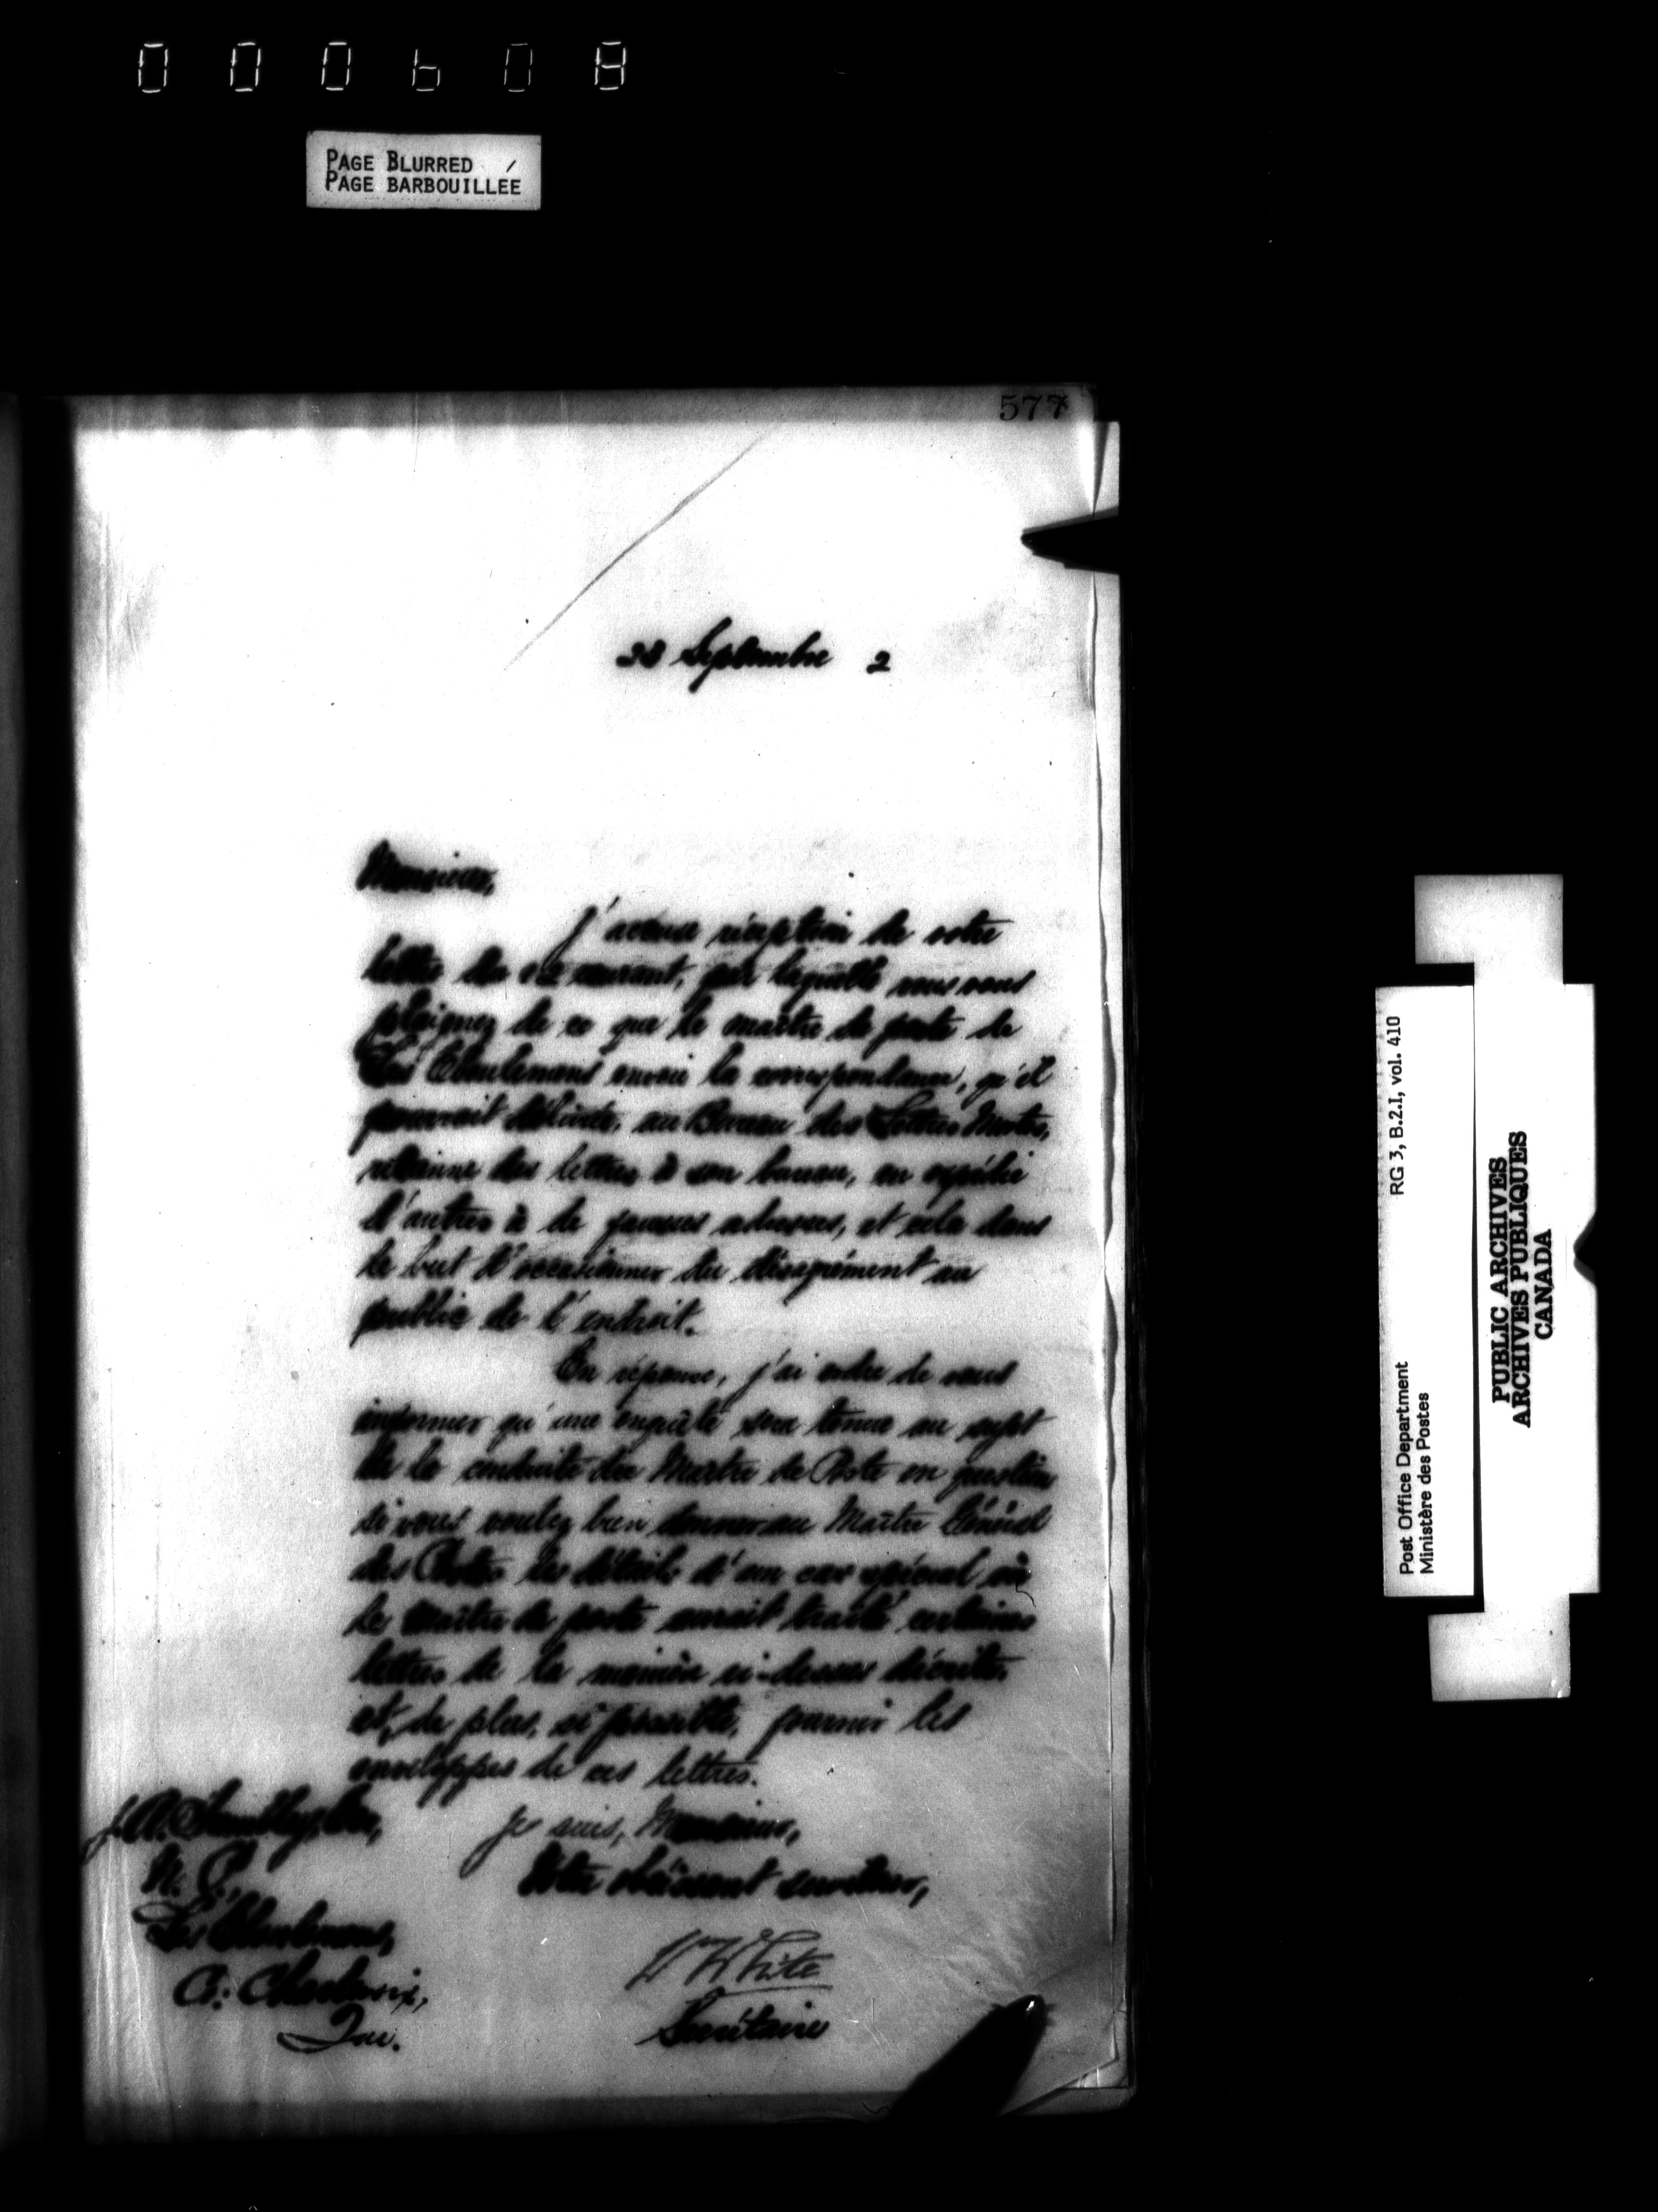 PAGE BLURRED
PAGE BARBOUILLÉE
577
Septembre 2
Monsieur,
J'accuse réception de votre
lettre du courant, par laquelle vous vous
plaignez de ce que le maître de poste de
Les Éboulements envoie la correspondance, qu'il
pourrait délivrer, au Bureau des Lettres Mortes,
retienne des lettres à son bureau, en expédie
d'autres à de fausses adresses, et cela dans
le but d'occasionner du désagrément au
public de l'endroit.
En réponse, j'ai ordre de vous
informer qu'une enquête sera tenue au sujet
de la conduite du Maître de Poste en question
si vous voulez bien donner au Maître Général
des Postes les détails d'un cas spécial où
le maître de poste aurait traité certaines
lettres de la manière ci-dessus décrite,
et, de plus, si possible, fournir les
enveloppes de ces lettres.
Je suis, Monsieur,
Votre obéissant serviteur,
W White
Secrétaire
J. A.
N. P.
Les Éboulements,
Co: Charlevoix,
Que.
RG 3, B.2.I, vol. 410
Post Office Department
Ministère des Postes
PUBLIC ARCHIVES
ARCHIVES PUBLIQUES
CANADA